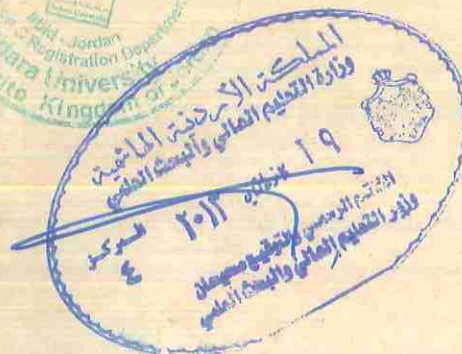 Irbid - Jordan
Registration Department
Jadara University
Kingdom of
المملكة الأردنية الهاشمية
وزارة التعليم العالي والبحث العلمي
١٩
٢٠١٢
المركز
٤
الختم الرسمي والتوقيع صحيحان
وزير التعليم العالي والبحث العلمي